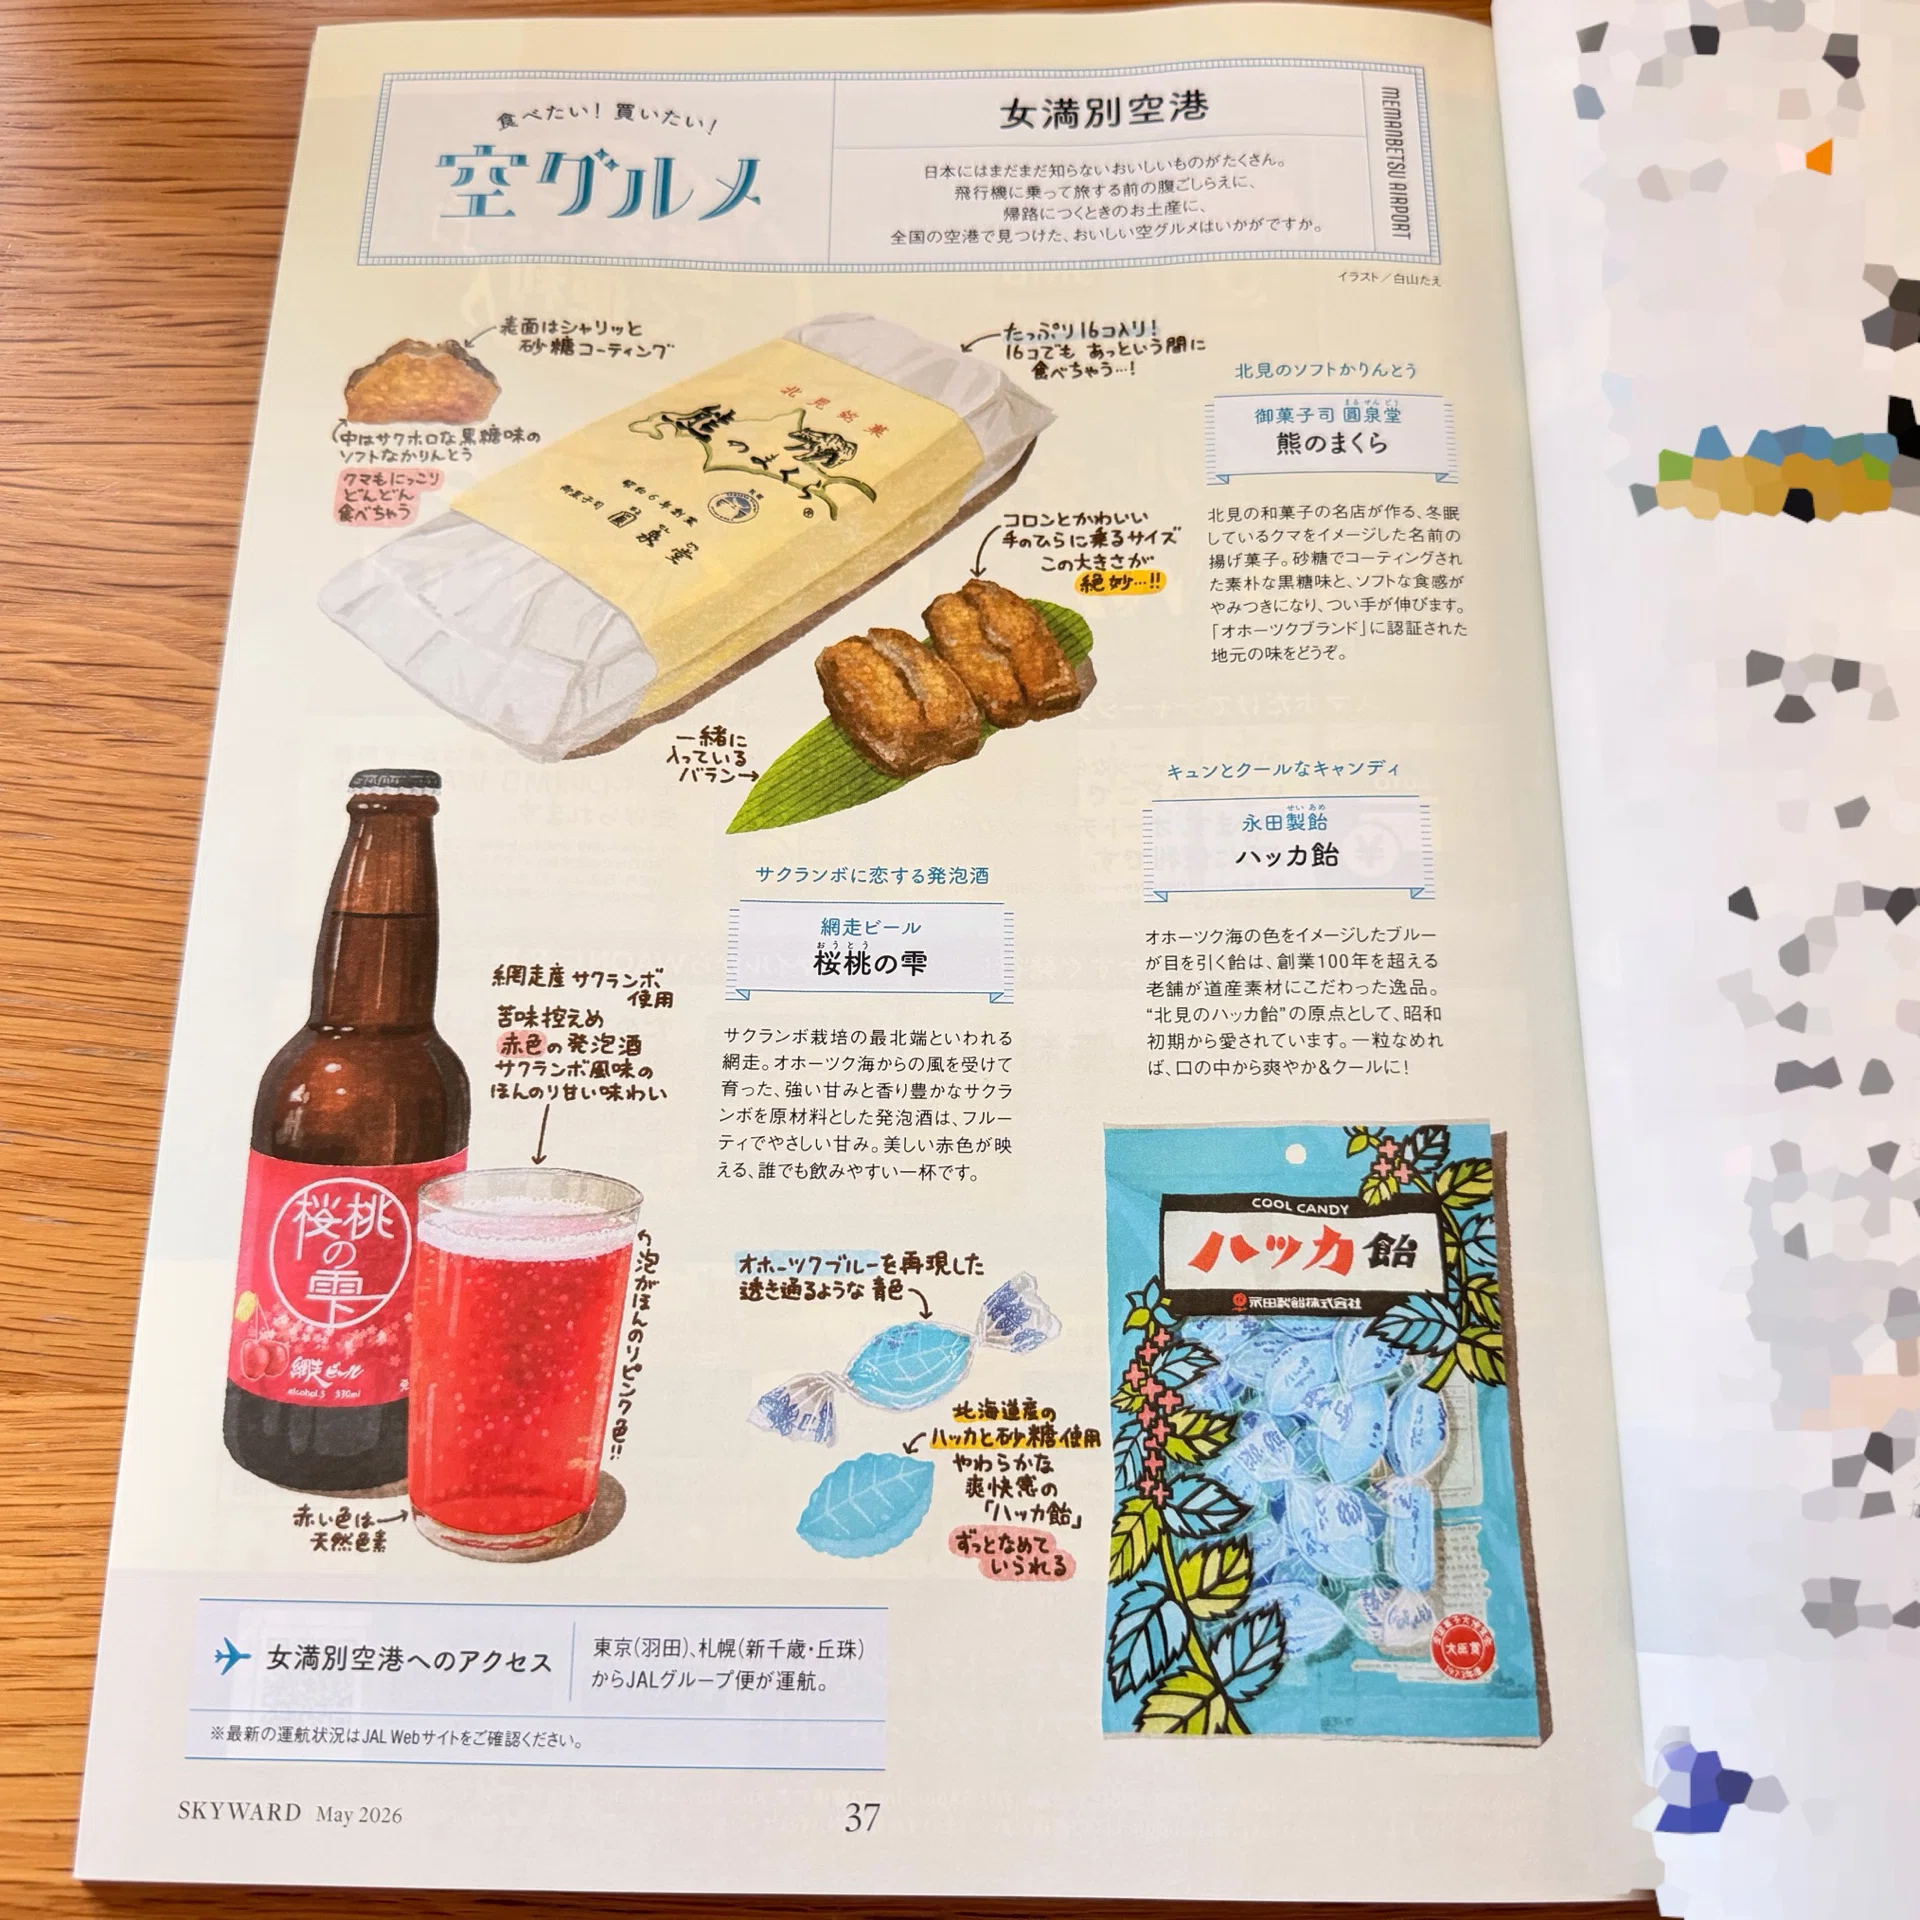 食べたい！買いたい！
空グルメ
女満別空港
日本にはまだまだ知らないおいしいものがたくさん。
飛行機に乗って旅する前の腹ごしらえに、
帰路につくときのお土産に、
全国の空港で見つけた、おいしい空グルメはいかがですか。
MEMANBETSU AIRPORT
イラスト／白山たえ
表面はシャリッと
砂糖コーティング
中はサクホロな黒糖味の
ソフトなかりんとう
クマもにっこり
どんどん
食べちゃう
北見銘菓
熊のまくら
®
昭和6年創業
御菓子司
圓泉堂
たっぷり16コ入り！
16コでも あっという間に
食べちゃう…！
コロンとかわいい
手のひらに乗るサイズ
この大きさが
絶妙…!!
一緒に
入っている
バラン
北見のソフトかりんとう
まるせんどう
御菓子司 圓泉堂
熊のまくら
北見の和菓子の名店が作る、冬眠
しているクマをイメージした名前の
揚げ菓子。砂糖でコーティングされ
た素朴な黒糖味と、ソフトな食感が
やみつきになり、つい手が伸びます。
「オホーツクブランド」に認証された
地元の味をどうぞ。
サクランボに恋する発泡酒
網走ビール
おうとう
桜桃の雫
サクランボ栽培の最北端といわれる
網走。オホーツク海からの風を受けて
育った、強い甘みと香り豊かなサクラ
ンボを原材料とした発泡酒は、フルー
ティでやさしい甘み。美しい赤色が映
える、誰でも飲みやすい一杯です。
網走産サクランボ
使用
苦味控えめ
赤色の発泡酒
サクランボ風味の
ほんのり甘い味わい
桜桃
の
雫
網走ビール
alcohol.5 330ml
泡がほんのりピンク色!!
赤い色は
天然色素
キュンとクールなキャンディ
せいあめ
永田製飴
ハッカ飴
オホーツク海の色をイメージしたブルー
が目を引く飴は、創業100年を超える
老舗が道産素材にこだわった逸品。
“北見のハッカ飴”の原点として、昭和
初期から愛されています。一粒なめれ
ば、口の中から爽やか&クールに！
オホーツクブルーを再現した
透き通るような青色
北海道産の
ハッカと砂糖使用
やわらかな
爽快感の
「ハッカ飴」
ずっとなめて
いられる
COOL CANDY
ハッカ飴
永田製飴株式会社
女満別空港へのアクセス
東京（羽田）、札幌（新千歳・丘珠）
からJALグループ便が運航。
※最新の運航状況はJAL Webサイトをご確認ください。
SKYWARD May 2026
37